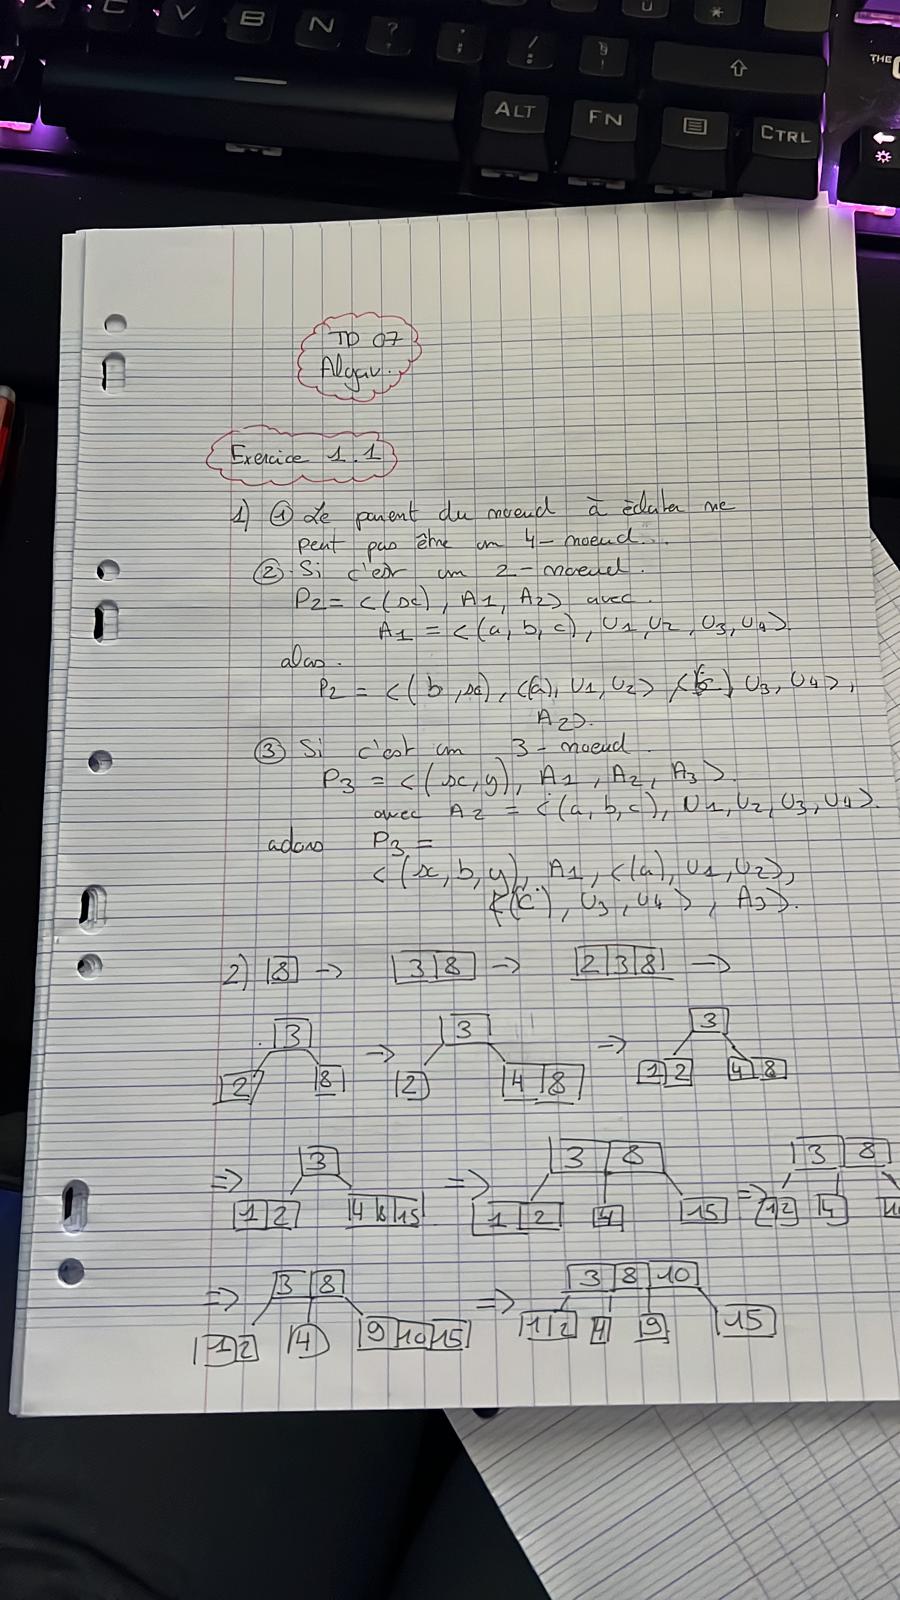 X C V B N ? ; ! § U *
ALT FN CTRL
THE
TD 07
Algav.
Exercice 1.1
1) ① Le parent du noeud à éclater ne
peut pas être un 4-noeud...
② Si c'est un 2-noeud.
P2 = <(x), A1, A2> avec.
A1 = <(a, b, c), U1, U2, U3, U4>
alos.
P2 = <(b, x), <(a), U1, U2>, <(c), U3, U4>,
A2>.
③ Si c'est un 3-noeud.
P3 = <(x, y), A1, A2, A3>.
avec A2 = <(a, b, c), U1, U2, U3, U4>.
alors P3 =
<(x, b, y), A1, <(a), U1, U2>,
<(c), U3, U4>, A3>.
2) 8 → 3 8 → 2 3 8 →
3 3 3
2 8 → 2 4 8 ⇒ 1 2 4 8
⇒ 3 ⇒ 3 8 ⇒ 3 8
1 2 4 8 15 1 2 4 15 1 2 4
⇒ 3 8 ⇒ 3 8 10
1 2 4 9 10 15 1 2 4 9 15